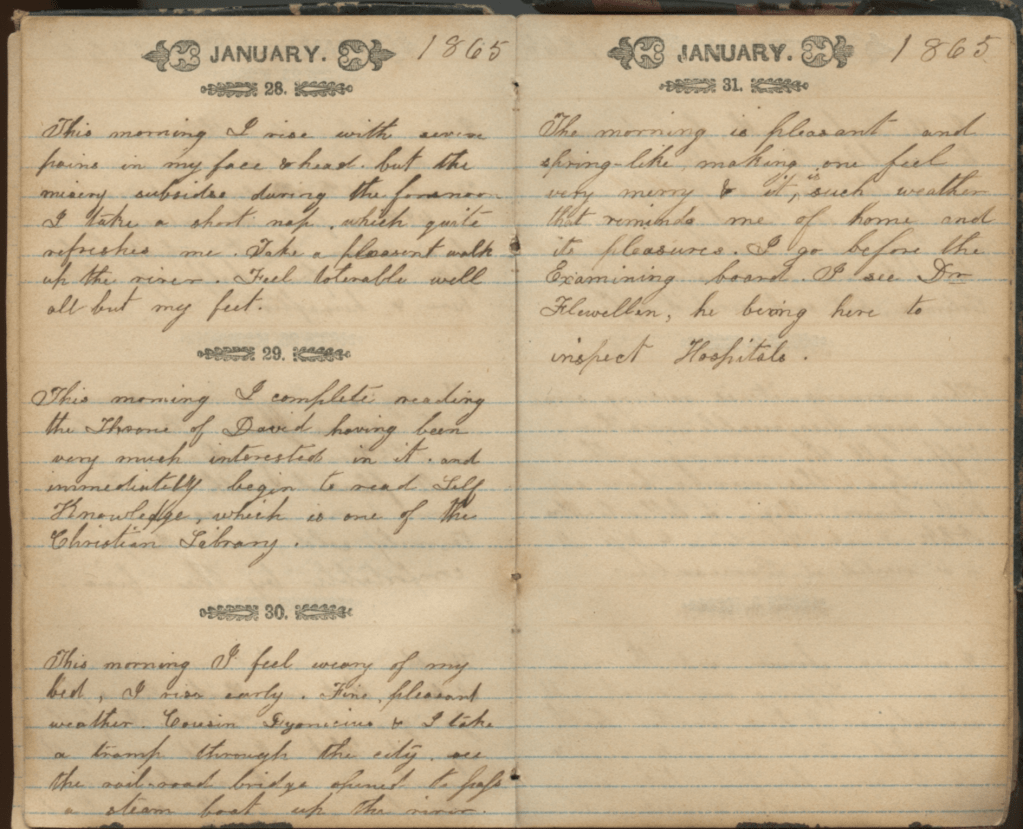 JANUARY. 1865
28.
This morning I rise with severe
pains in my face & head. but the
misery subsides during the forenoon
I take a short nap. which quite
refreshes me. Take a pleasent walk
up the river. Feel tolerable well
all but my feet.
29.
This morning I complete reading
the Throne of David having been
very much interested in it. and
immediately begin to read Self
Knowledge, which is one of the
Christian Library.
30.
This morning I feel weary of my
bed, I rise early. Fine, pleasant
weather. Cousin & I take
a tramp through the city. see
the rail-road bridge opened to pass
a steam boat up the river.
JANUARY. 1865
31.
The morning is pleasant and
spring-like, making one feel
very merry & it, is such weather
that reminds me of home and
its pleasures. I go before the
Examining board. I see Dr
Flewellin, he being here to
inspect Hospitals.